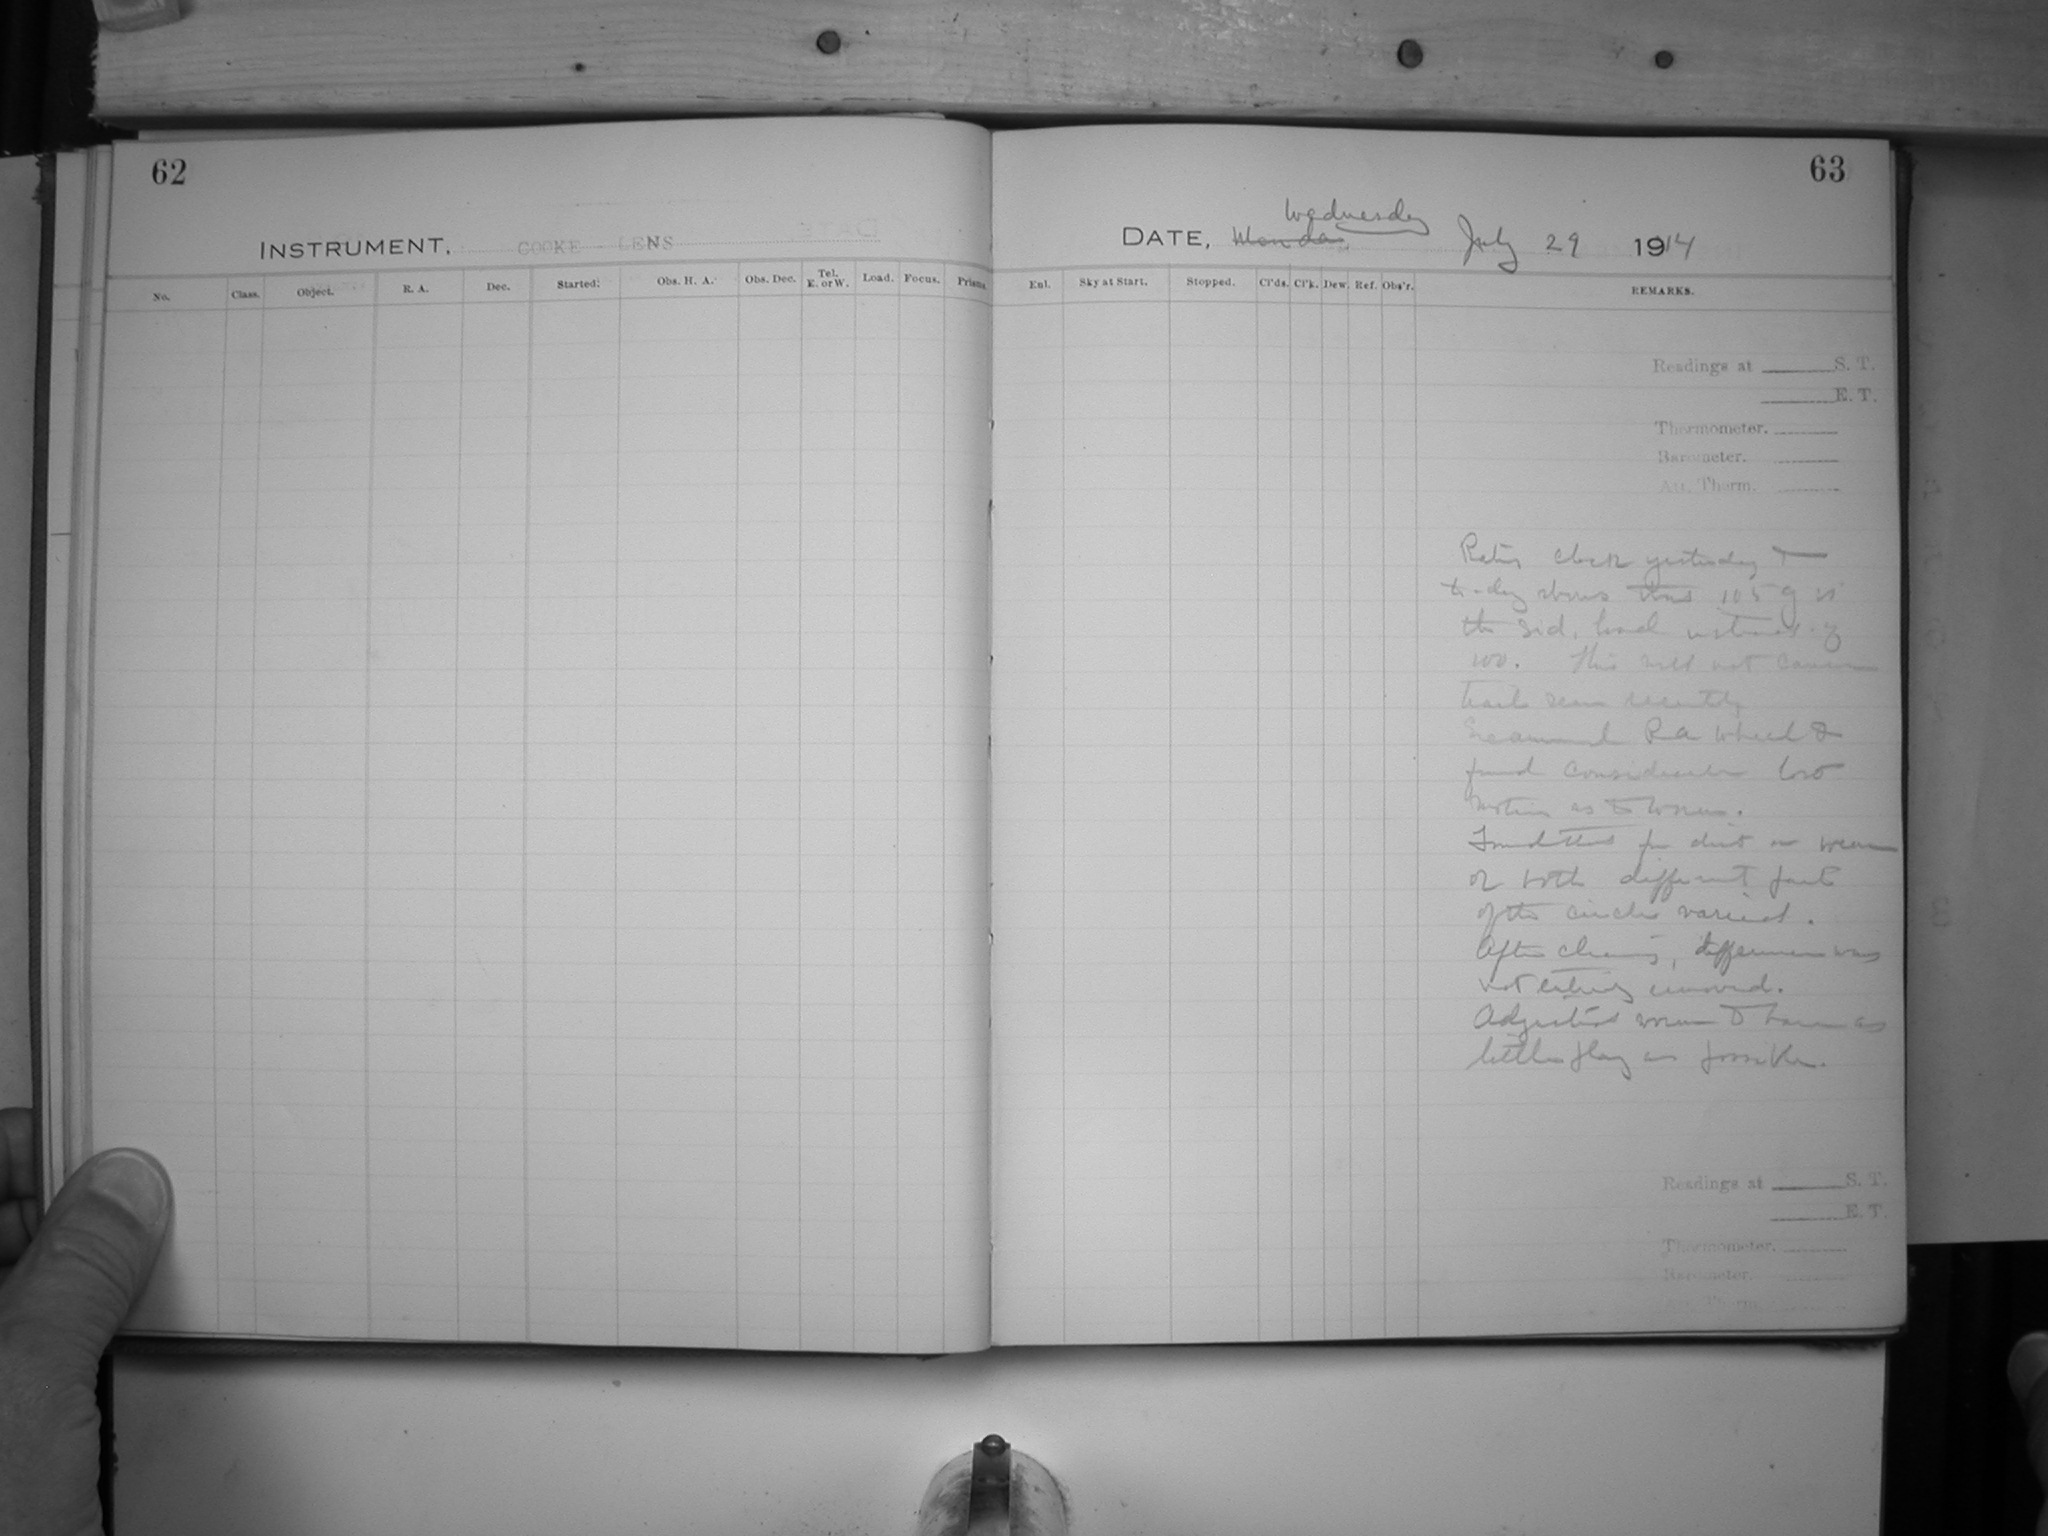 62
INSTRUMENT, COOKE LENS
No. Class. Object. R. A. Dec. Started. Obs. H. A. Obs. Dec. Tel. E. or W. Load. Focus. Prisms.
63
Wednesday
DATE, Monday July 29 1914
Enl. Sky at Start. Stopped. Cl'ds. Cl'k. Dew. Ref. Obs'r. REMARKS.
Readings at S. T.
E. T.
Thermometer.
Barometer.
Att. Therm.
clock yesterday &
to-day shows that 105 g is
the sid. load instead of
100. This will not cause
trails seen recently
Examined R.A. wheel &
found considerable lost
motion as to worm.
Found that for dirt or wear
or both different parts
of the circle varied.
After cleaning, difference was
not entirely removed.
Adjusted worm to have as
little play as possible.
Readings at S. T.
E. T.
Thermometer.
Barometer.
Att. Therm.